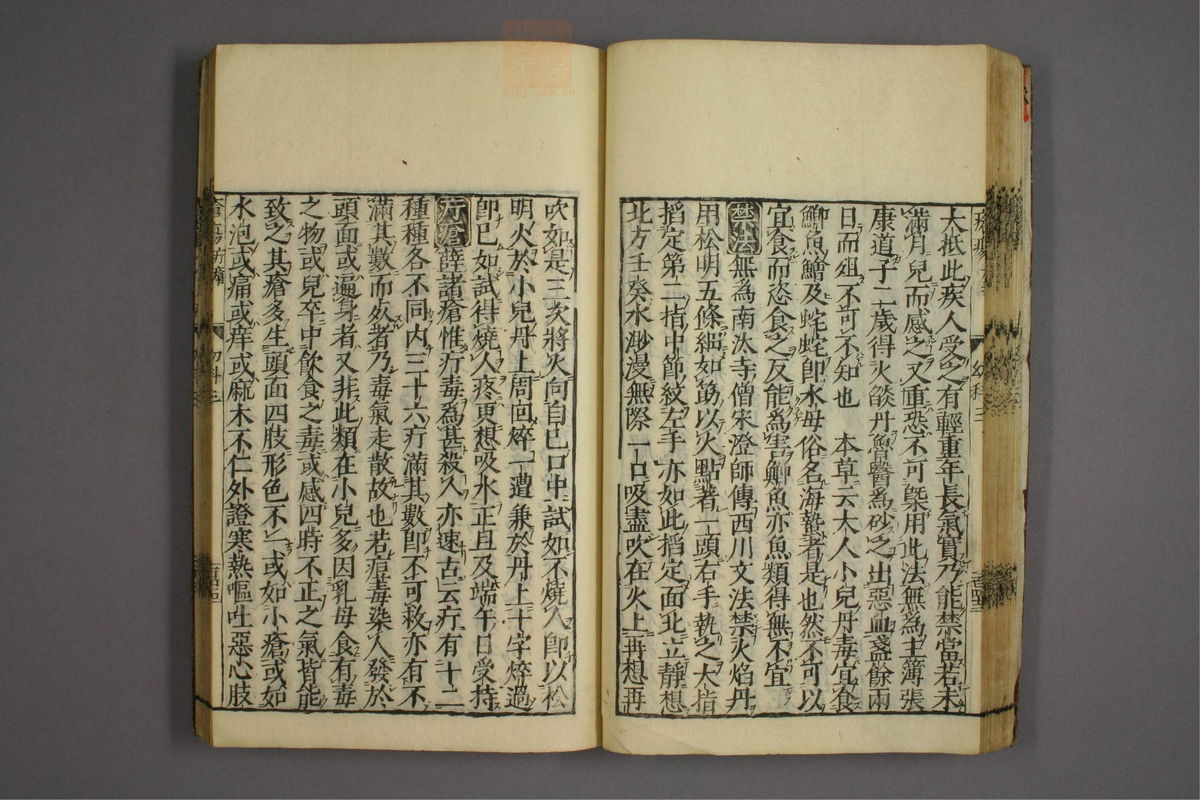 大抵此疾人受之有輕重年長氣實乃能禁當若未
滿月兒而感之又重恐不可槩用此法無為主簿張
康道子二歲得火燄丹魯醫為砂之出惡血盞餘兩
日而殂不可不知也　本草云大人小兒丹毒宜食
鯽魚鱠及蛇蛇即水母俗名海蟄者是也然不可以
宜食而恣食之反能爲害鯽魚亦魚類得無不宜
禁法無為南汰寺僧宋澄師傳西川文法禁火焰丹
用松明五條細如筯以火點著一頭右手執之大指
搯定第二指中節紋左手亦如此搯定面北立靜想
北方壬癸水渺漫無際一口吸盡吹在火上再想再
吹如是三次將火向自己口中試如不燒人卽以松
明火於小兒丹上周回焠一遭兼於丹上十字焠過
卽已如試得燒人疼更想吸水正旦及端午日受持
疔瘡薛諸瘡惟疔毒爲甚殺人亦速古云疔有十二
種種各不同内三十六疔滿其數卽不可救亦有不
滿其數而死者乃毒氣走散故也若疽毒染人發於
頭面或遍身者又非此類在小兒多因乳母食有毒
之物或兒卒中飲食之毒或感四時不正之氣皆能
致之其瘡多生頭面四肢形色不一或如小瘡或如
水泡或痛或痒或麻木不仁外證寒熱嘔吐惡心肢